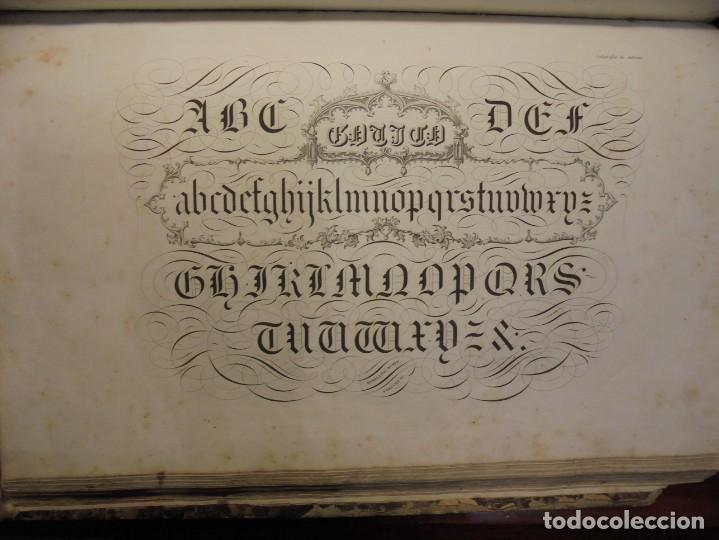 ABC GOTICO DEF
abcdefghijklmnopqrstuvwxyz
GHIKLMNOPQRS
TUVWXYZ&.
todocoleccion